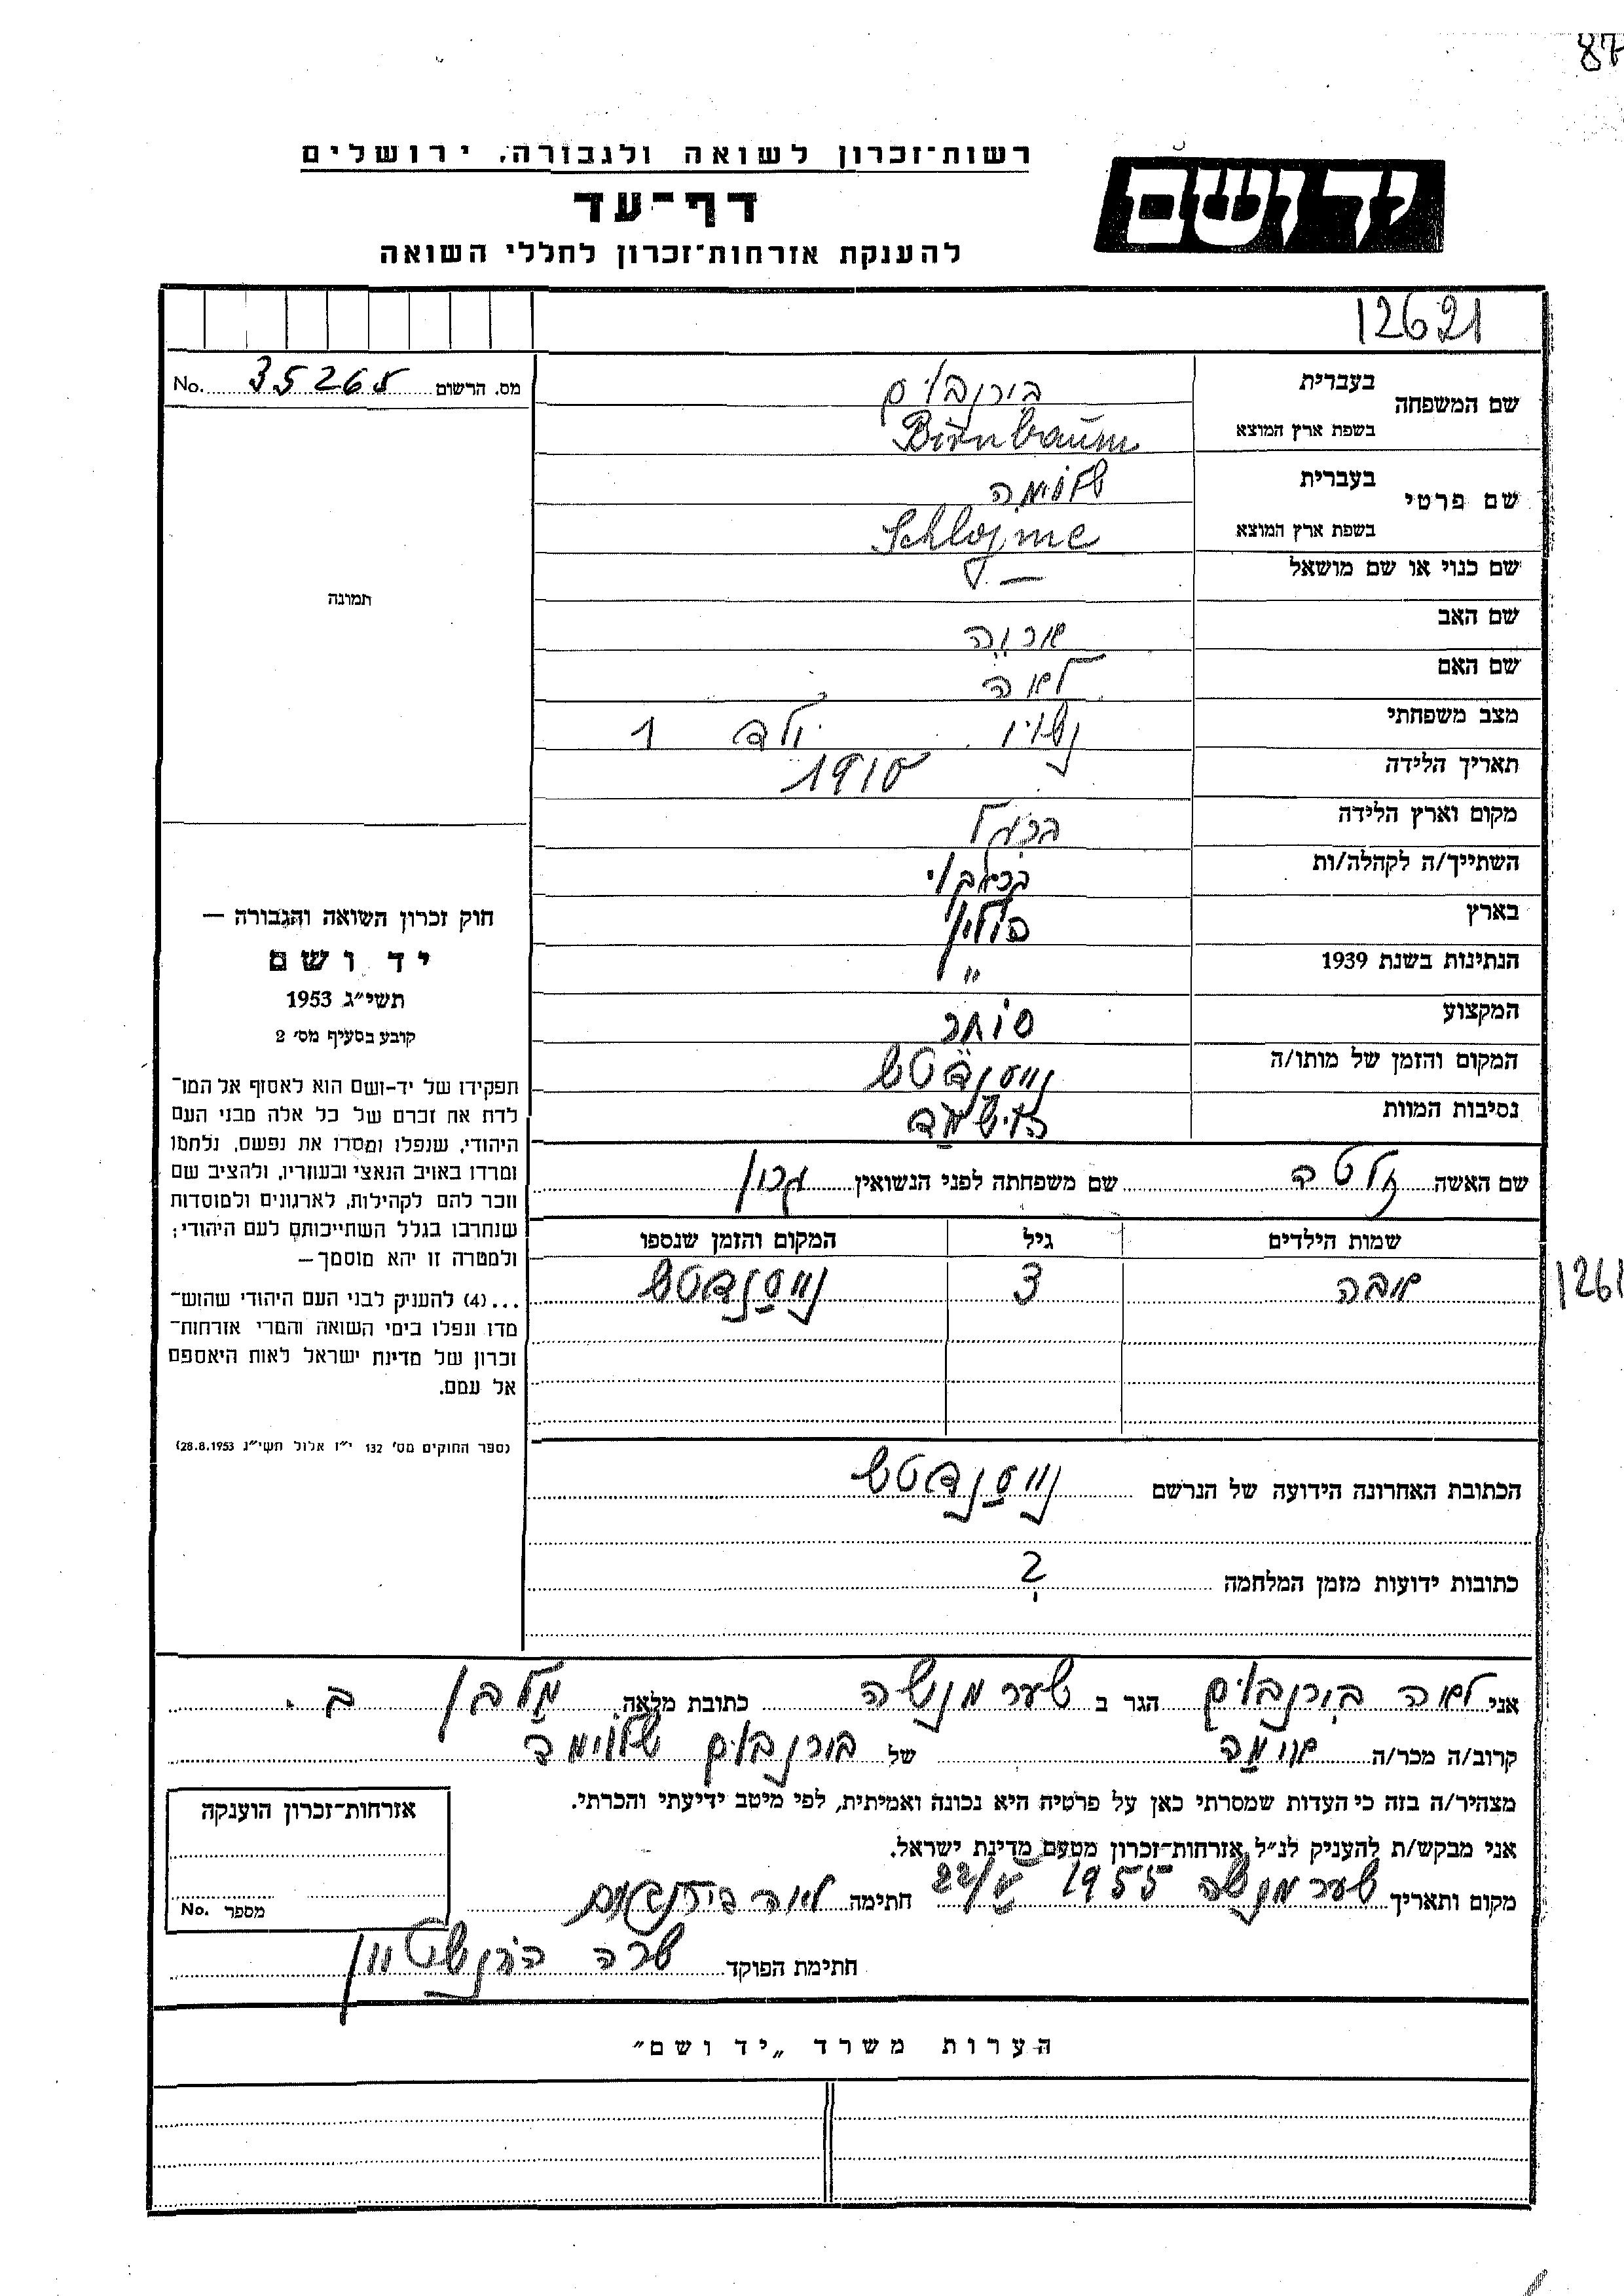 87
רשות־זכרון לשואה ולגבורה, ירושלים
יד ושם
דף־עד
להענקת אזרחות־זכרון לחללי השואה
12621
מס. הרשום 35265 No.
שם המשפחה בעברית בירנבוים
בשפת ארץ המוצא Birnbaum
שם פרטי בעברית שלוימה
בשפת ארץ המוצא Schlojme
שם כנוי או שם מושאל —
שם האב אריה
שם האם לאה
מצב משפחתי נשוי ילד 1
תאריך הלידה 1910
מקום וארץ הלידה
השתייך/ה לקהלה/ות
בארץ פולין
הנתינות בשנת 1939 "
המקצוע סוחר
המקום והזמן של מותו/ה
נסיבות המוות
תמונה
חוק זכרון השואה והגבורה —
יד ושם
תשי״ג 1953
קובע בסעיף מס׳ 2
תפקידו של יד-ושם הוא לאסוף אל המו־
לדת את זכרם של כל אלה מבני העם
היהודי, שנפלו ומסרו את נפשם, נלחמו
ומרדו באויב הנאצי ובעוזריו, ולהציב שם
וזכר להם לקהילות, לארגונים ולמוסדות
שנחרבו בגלל השתייכותם לעם היהודי;
ולמטרה זו יהא מוסמך —
...(4) להעניק לבני העם היהודי שהוש־
מדו ונפלו בימי השואה והמרי אזרחות־
זכרון של מדינת ישראל לאות היאספם
אל עמם.
(ספר החוקים מס׳ 132 י״ז אלול תשי״ג 28.8.1953)
שם האשה זלטה שם משפחתה לפני הנשואין
שמות הילדים גיל המקום והזמן שנספו
3
1261
הכתובת האחרונה הידועה של הנרשם
כתובות ידועות מזמן המלחמה ?
אני לאה בירנבוים הגר ב שער מנשה כתובת מלאה מלבן ב.
קרוב/ה מכר/ה של בירנבוים שלוימה
מצהיר/ה בזה כי העדות שמסרתי כאן על פרטיה היא נכונה ואמיתית, לפי מיטב ידיעתי והכרתי.
אני מבקש/ת להעניק לנ״ל אזרחות־זכרון מטעם מדינת ישראל.
מקום ותאריך שער מנשה 1955 חתימה לאה בירנבוים
חתימת הפוקד שרה
אזרחות־זכרון הוענקה
מספר No.
הערות משרד „יד ושם״